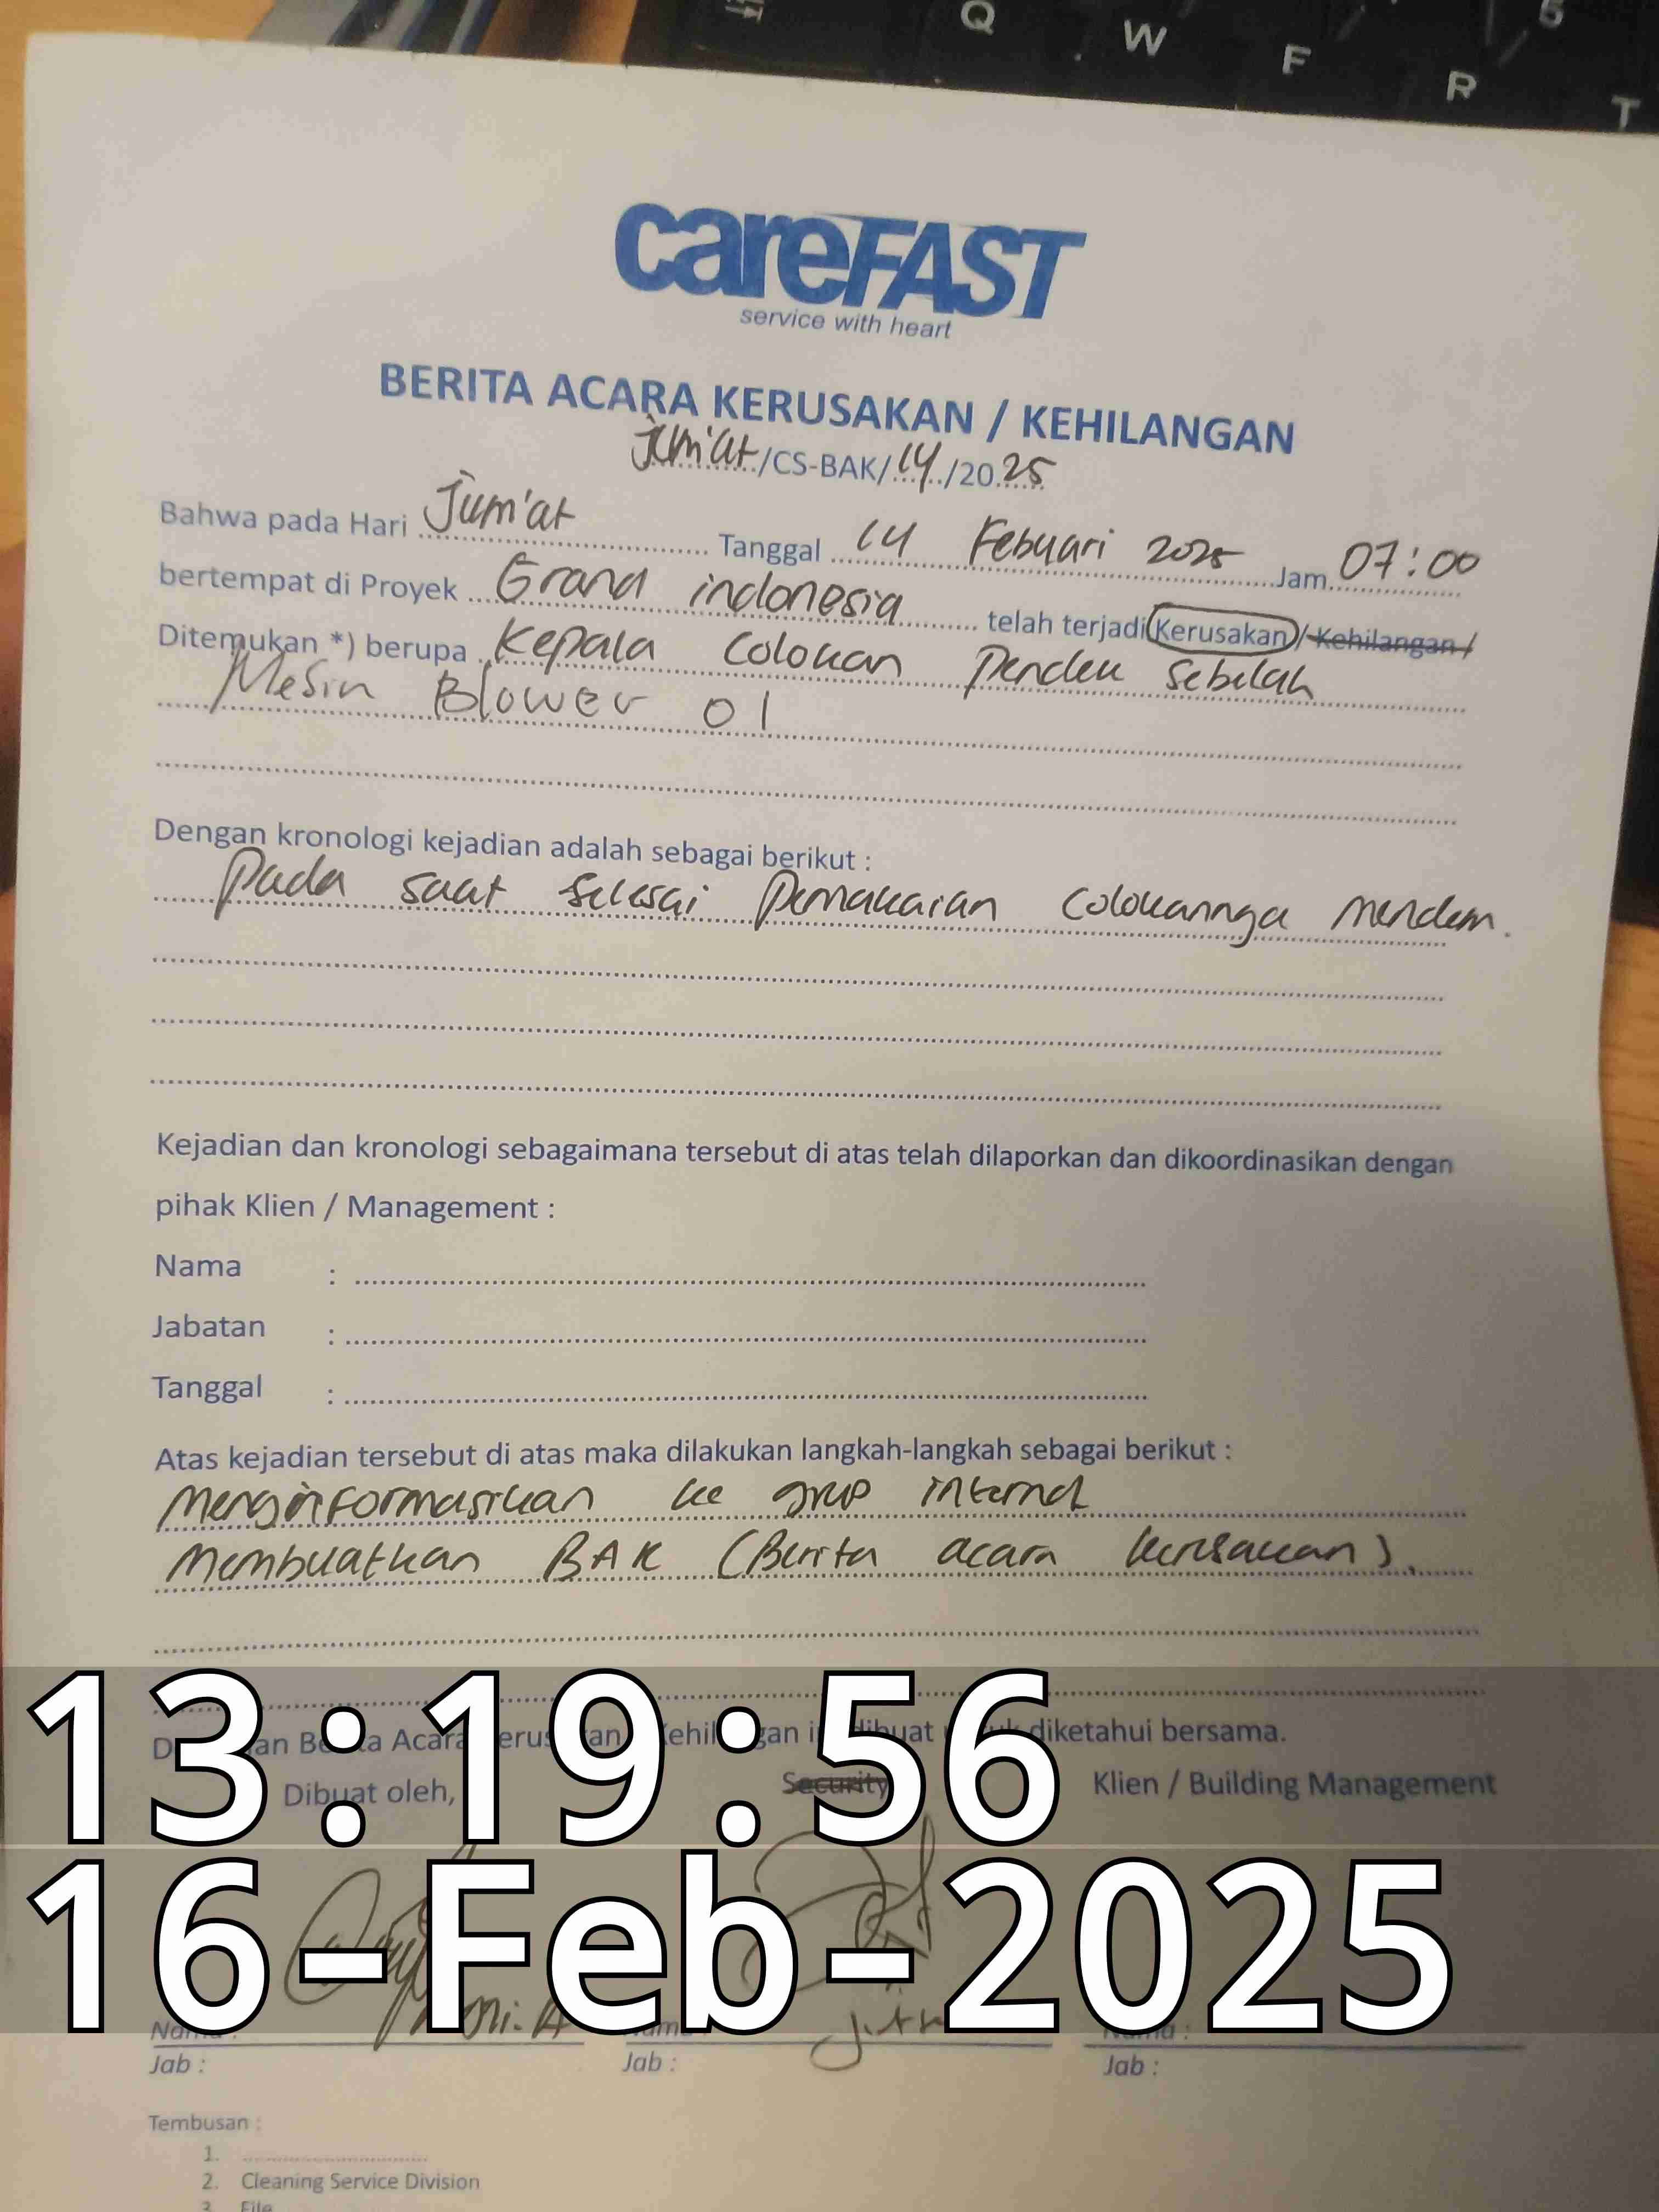 Q W F R T 5
careFAST
service with heart
BERITA ACARA KERUSAKAN / KEHILANGAN
Jum'at/CS-BAK/14/2025
Bahwa pada Hari Jum'at Tanggal 14 Febuari 2025 Jam 07:00
bertempat di Proyek Grand indonesia telah terjadi Kerusakan / Kehilangan /
Ditemukan *) berupa Kepala Colokan Pendek Sebelah
Mesin Blower 01
Dengan kronologi kejadian adalah sebagai berikut :
Pada saat selesai Pemakaian Colokannya Mendem.
Kejadian dan kronologi sebagaimana tersebut di atas telah dilaporkan dan dikoordinasikan dengan
pihak Klien / Management :
Nama :
Jabatan :
Tanggal :
Atas kejadian tersebut di atas maka dilakukan langkah-langkah sebagai berikut :
Menginformasikan ke grup internal
Membuatkan BAK (Berita acara kerusakan).
13:19:56
Acara diketahui bersama.
Dibuat oleh, Security Klien / Building Management
16-Feb-2025
Jab : Jab : Jab :
Tembusan :
1.
2. Cleaning Service Division
3. File